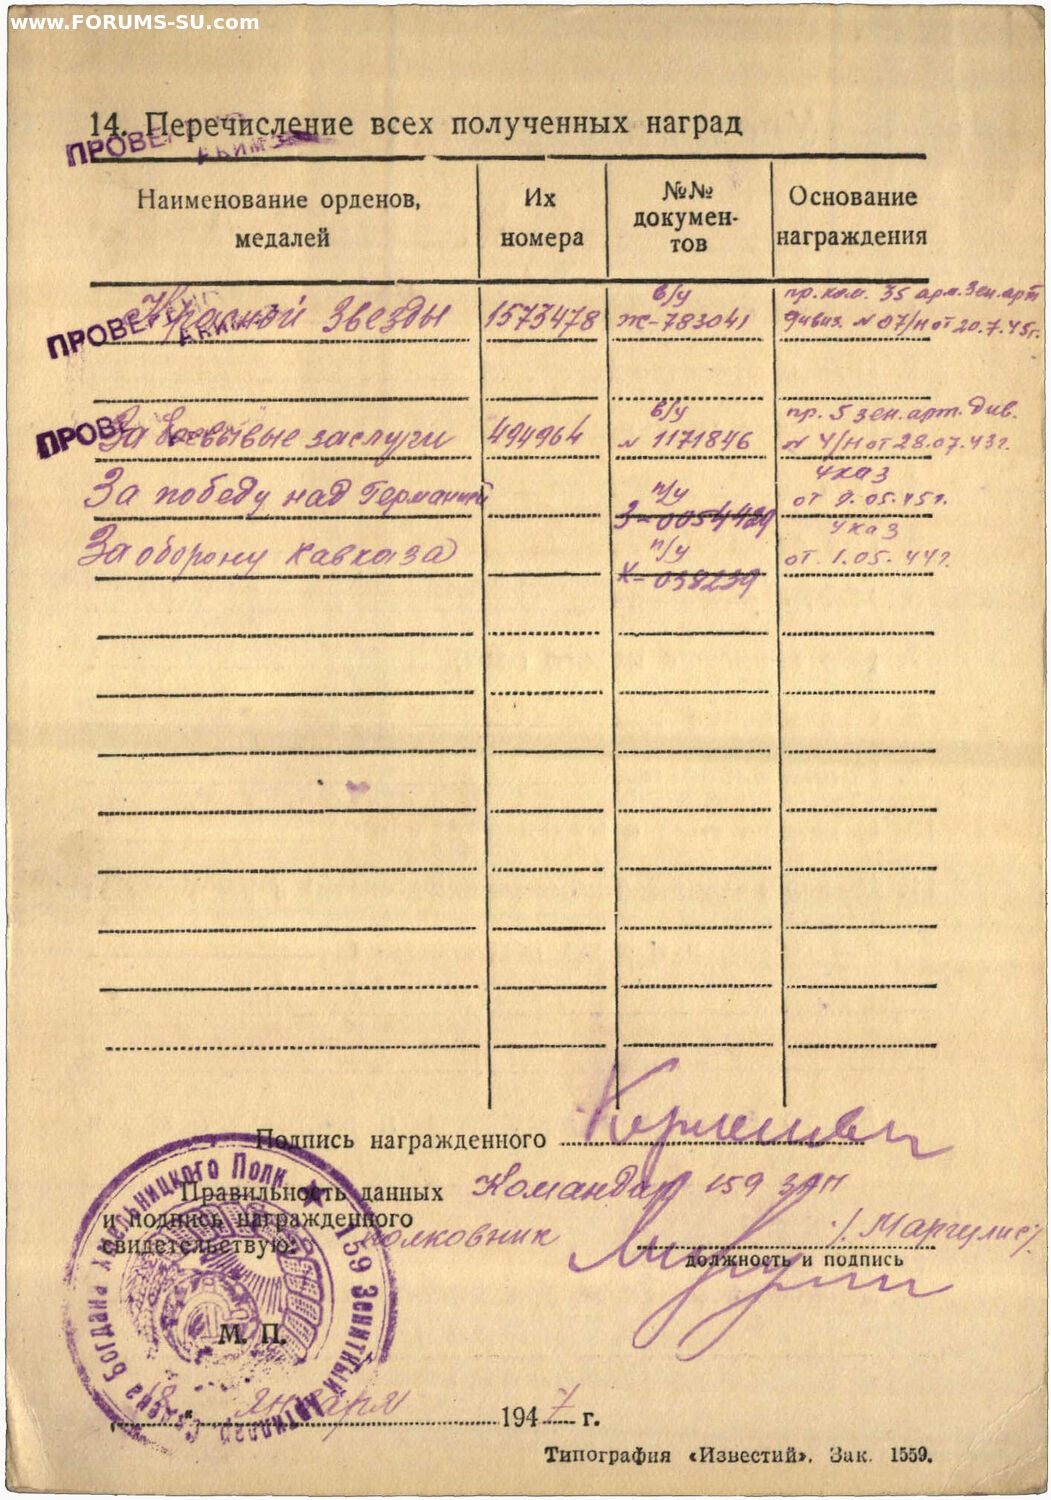 www.FORUMS-SU.com
14. Перечисление всех полученных наград
ПРОВЕРЕНО
АКИМ
Наименование орденов, медалей
Их номера
№№ докумен-тов
Основание награждения
Красной Звезды 1573478 в/у Ж-783041 пр. ком. 35 арм. Зен. арт дивиз. № 07/н от 20.7.45г.
ПРОВЕРЕНО
АКИМ
За боевывые заслуги 494964 в/у № 1171846 пр. 5 зен. арт. див. № 4/н от 28.07.43г.
ПРОВЕ
За победу над Германией п/у З-0054429 указ от 9.05.45г.
За оборону Кавказа п/у К-038239 указ от 1.05.44г.
Подпись награжденного
Правильность данных Командир 159 ЗАП
и подпись награжденного
свидетельствую: полковник /Маргулис/
должность и подпись
159 Зенитный Артиллер. Ордена Богдана Хмельницкого Полк
М. П.
18 " января 1947 г.
Типография «Известий». Зак. 1559.